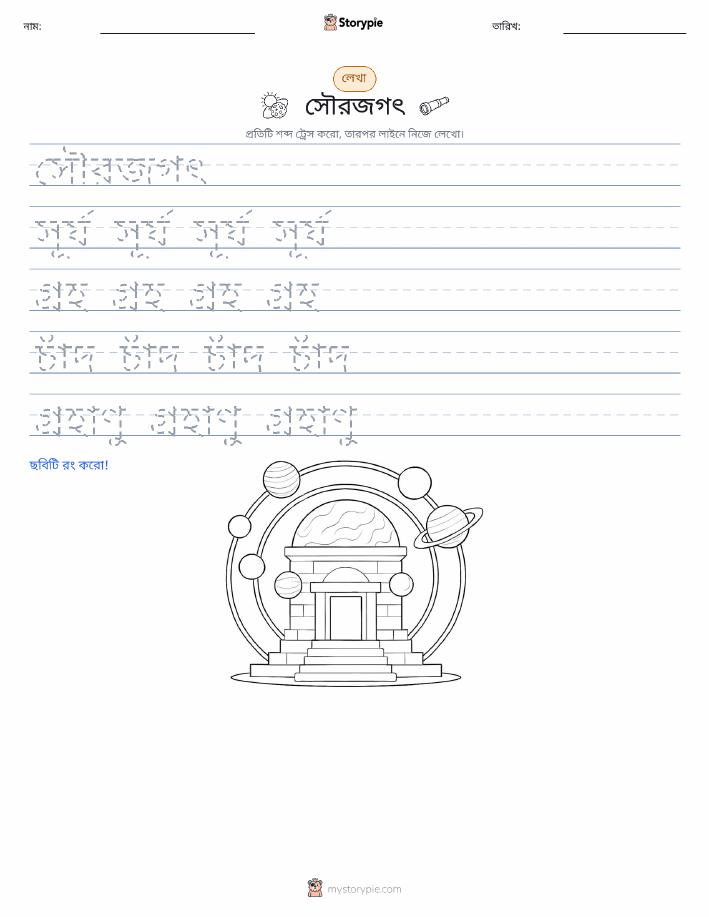 নাম: Storypie তারিখ:
লেখা
সৌরজগৎ
প্রতিটি শব্দ ট্রেস করো, তারপর লাইনে নিজে লেখো।
সৌরজগৎ
সূর্য সূর্য সূর্য সূর্য
গ্রহ গ্রহ গ্রহ গ্রহ
চাঁদ চাঁদ চাঁদ চাঁদ
গ্রহাণু গ্রহাণু গ্রহাণু
ছবিটি রং করো!
mystorypie.com